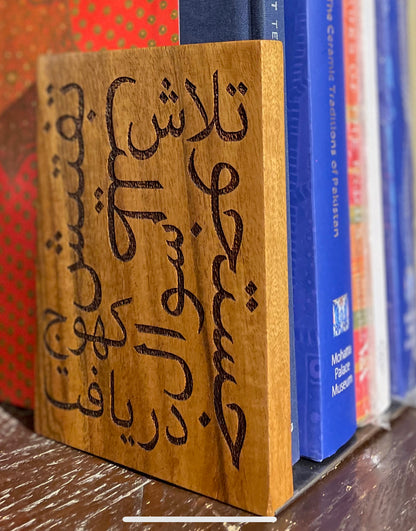 تلاش
جستجو
سوال
دریافت
کھوج
تفتیش
The Ceramic Traditions of Pakistan
Mohatta
Palace
Museum